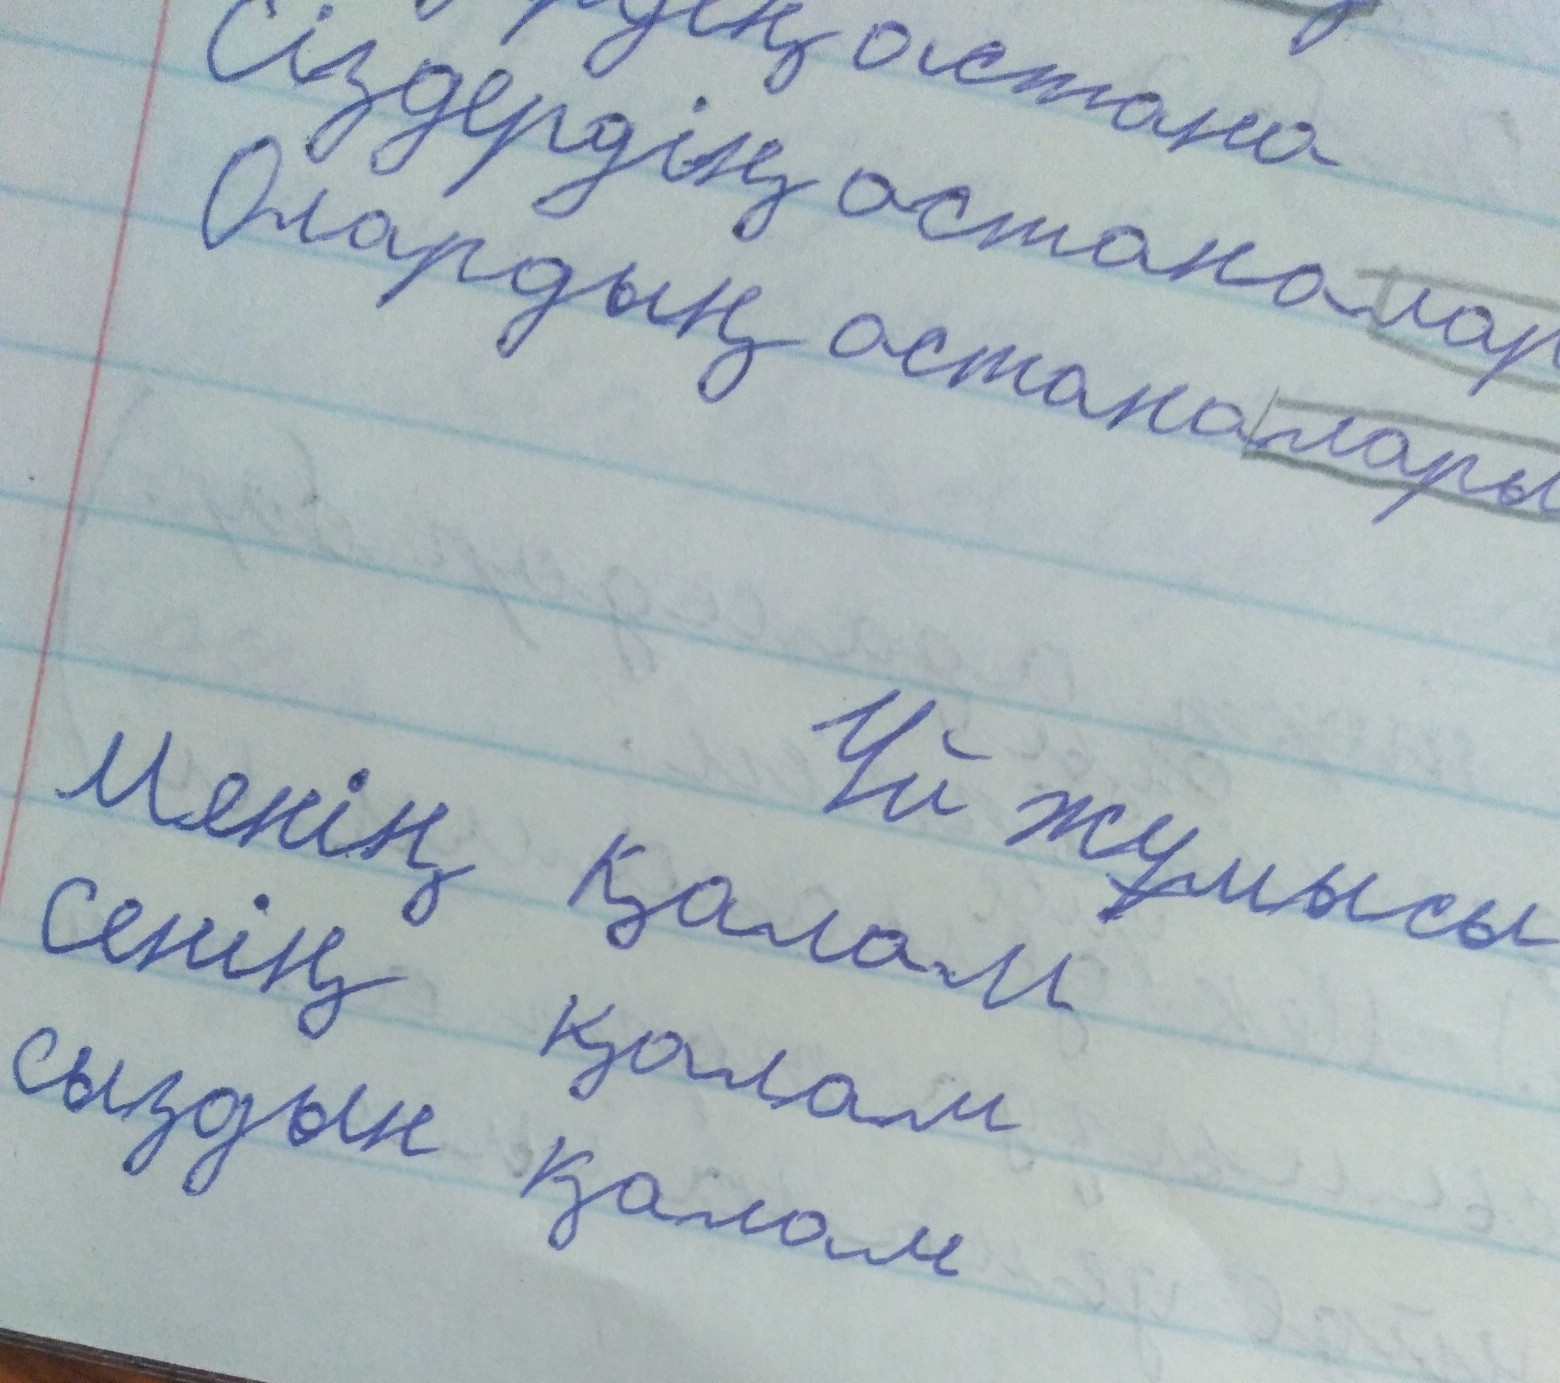 астана
Сіздердің астаналар
Олардың астаналары
Үй жұмысы
Менің қалам
сенің қалам
сыздын қалам